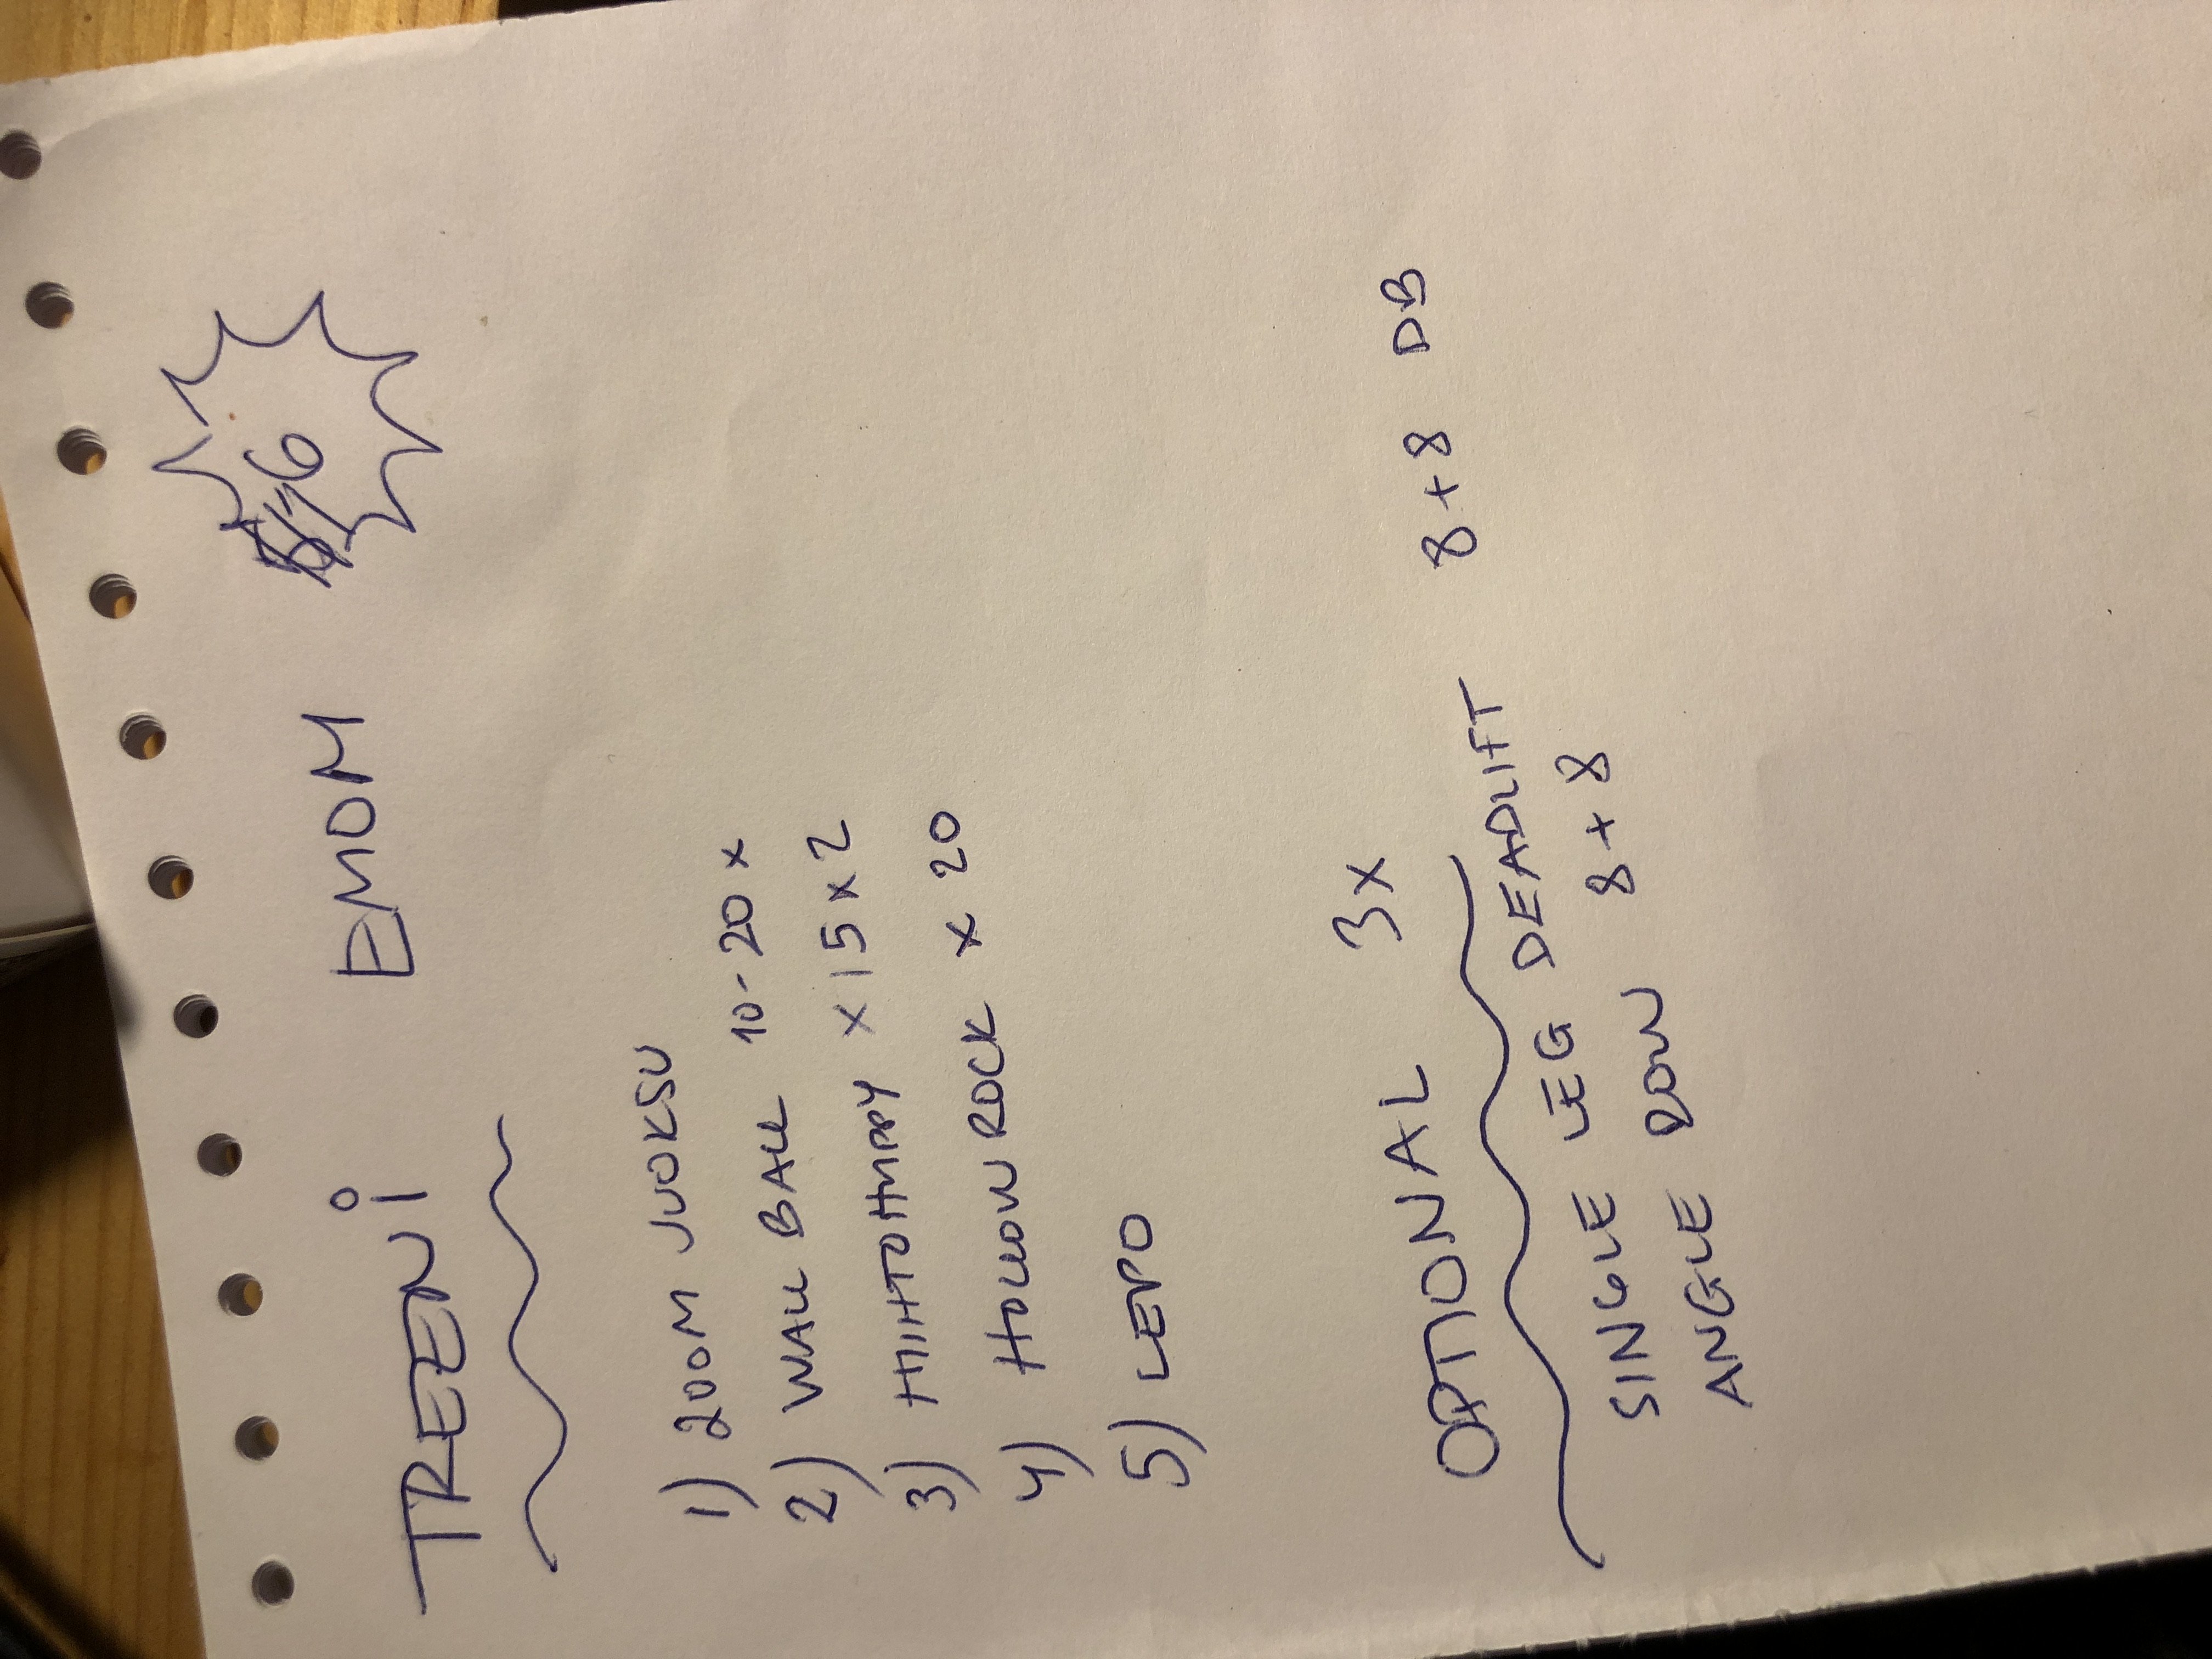 TREENi EMOM 6
1) 200M JUOKSU
2) WALL BALL 10-20 x
3) HIIHTOHYPPY x 15 x 2
4) HOLLOW ROCK x 20
5) LEPO
OPTIONAL 3x
SINGLE LEG DEADLIFT 8+8 DB
ANGLE ROW 8+8